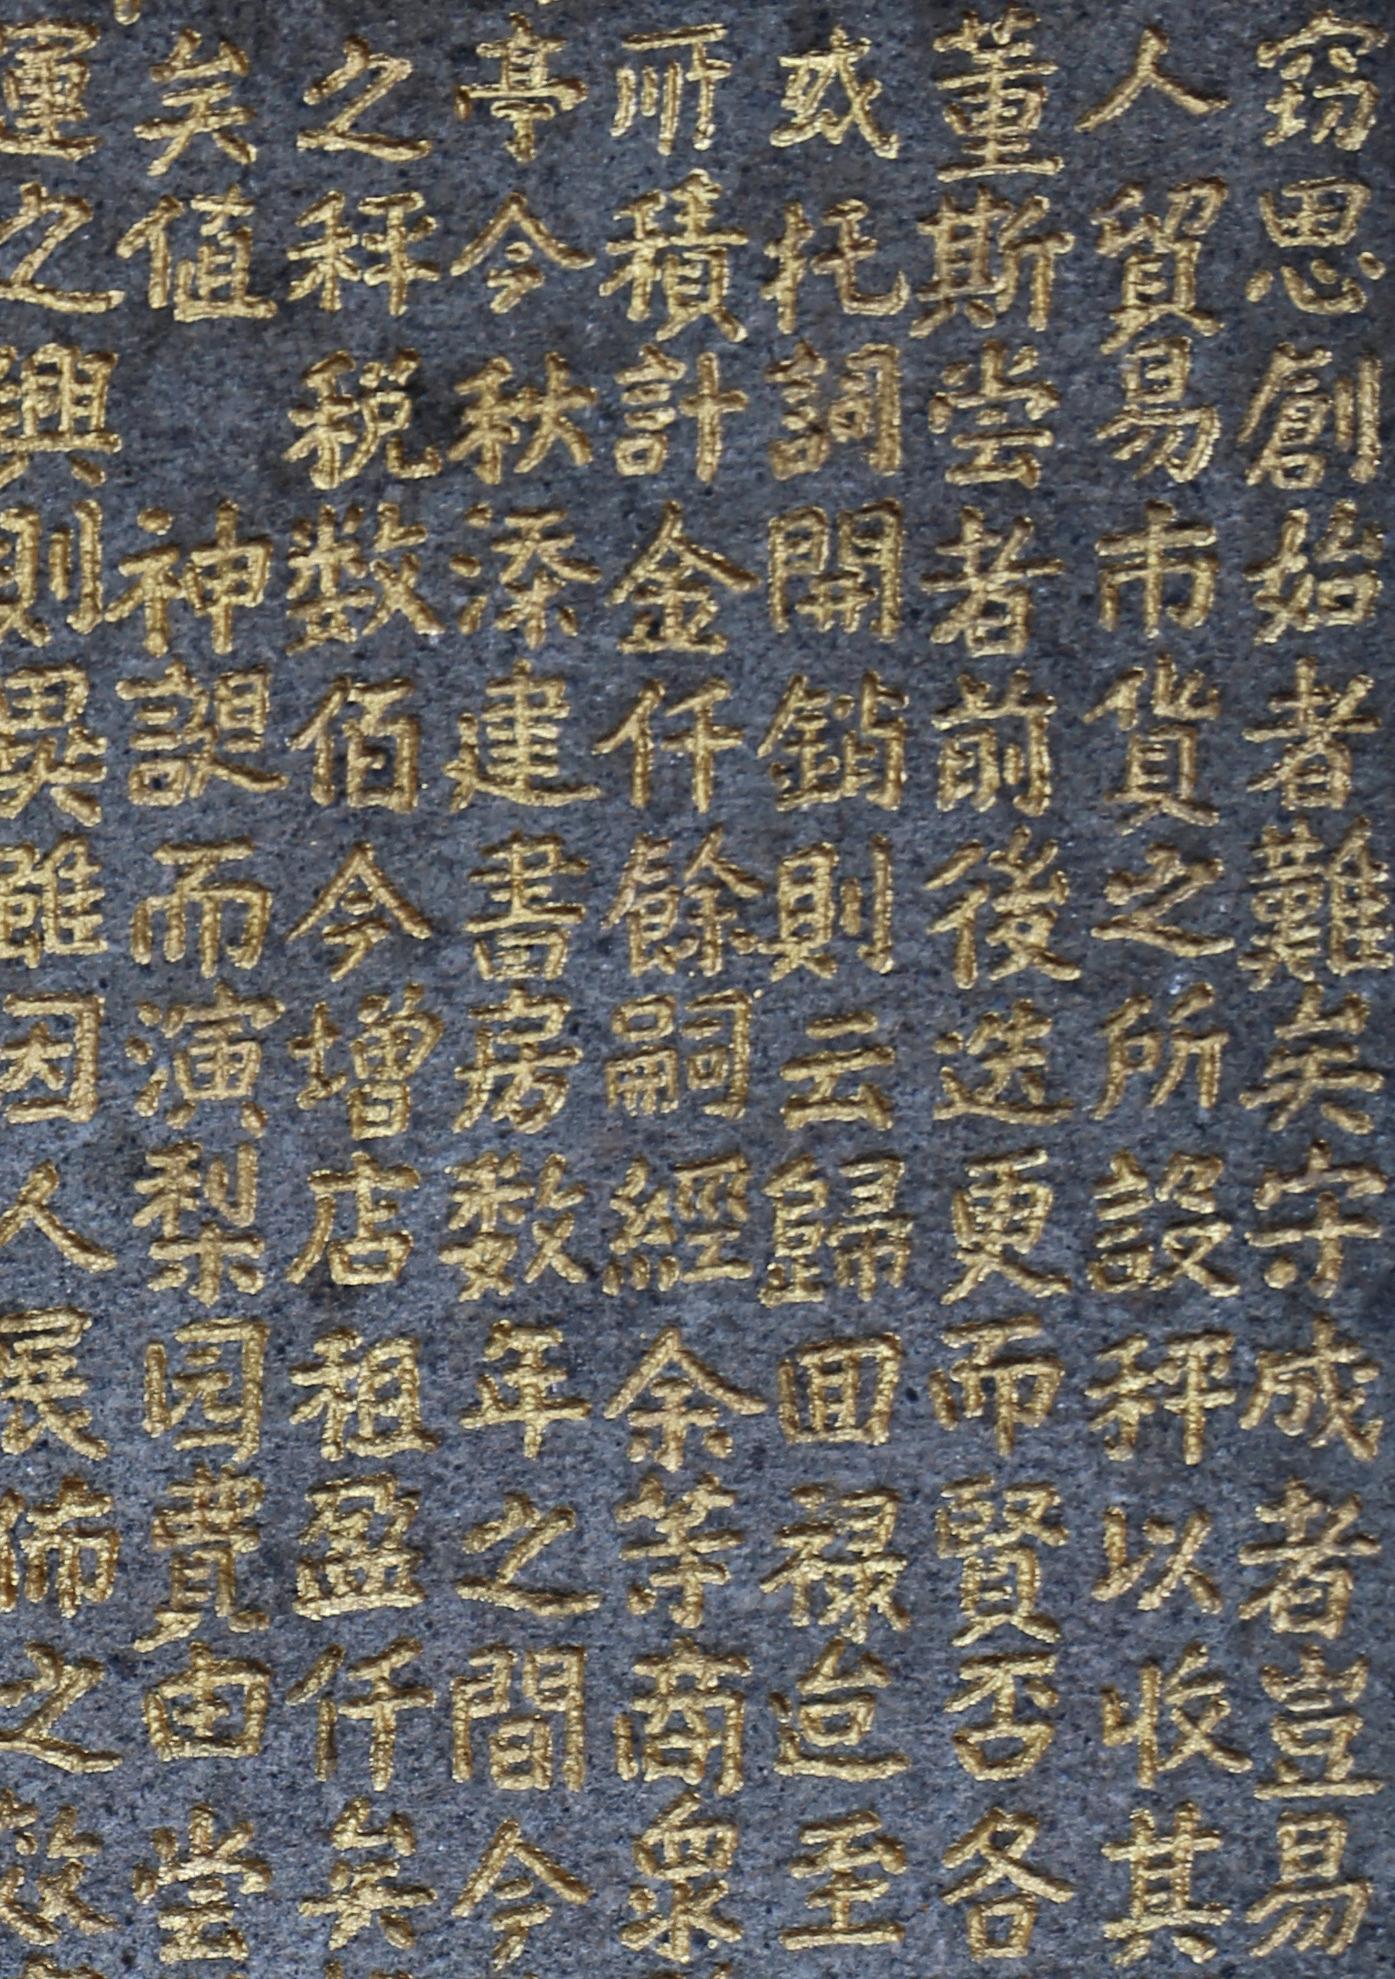 窃思創始者難矣守成者豈易
人貿易市貨之所設秤以收其
董斯尝者前後迭更而賢否各
或托詞開銷則云歸囬禄迨至
所積計金仟餘嗣經余等商衆
亭今秋添建書房数年之間今
之秤税数佰今增店租盈仟矣
矣值神誕而演梨园費由尝
運之興則異雖因人展佈之故